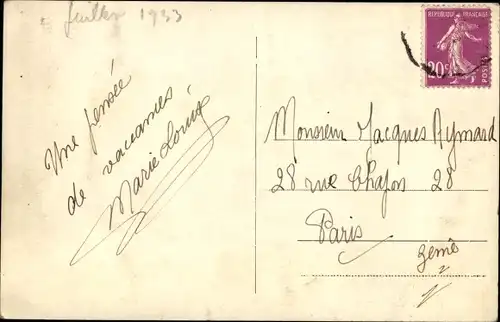 Juillet 1933
Une pensée
de vacances
Marie Louise
RÉPUBLIQUE FRANÇAISE
20c
POSTES
Monsieur Jacques Aymard
28 rue Chapon 28
Paris
3eme